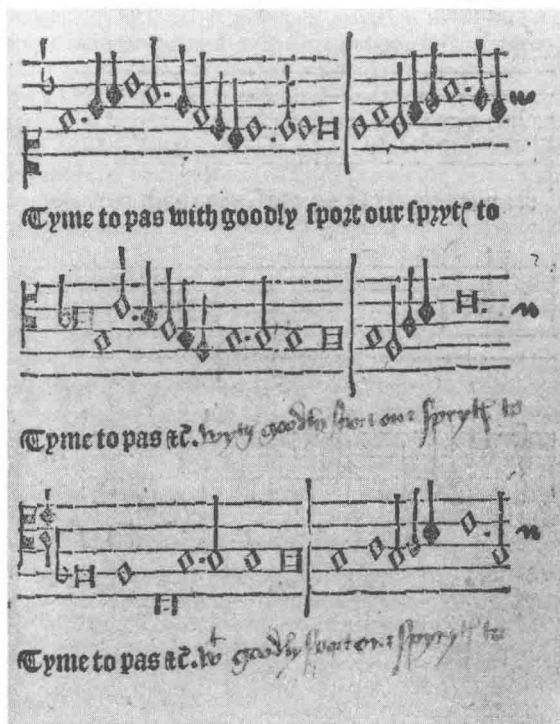 Tyme to pas with goodly sport our sprytꝭ to
Tyme to pas ⁊c. wyth goodly sport our sprytꝭ to
Tyme to pas ⁊c. wt goodly sport our sprytꝭ to